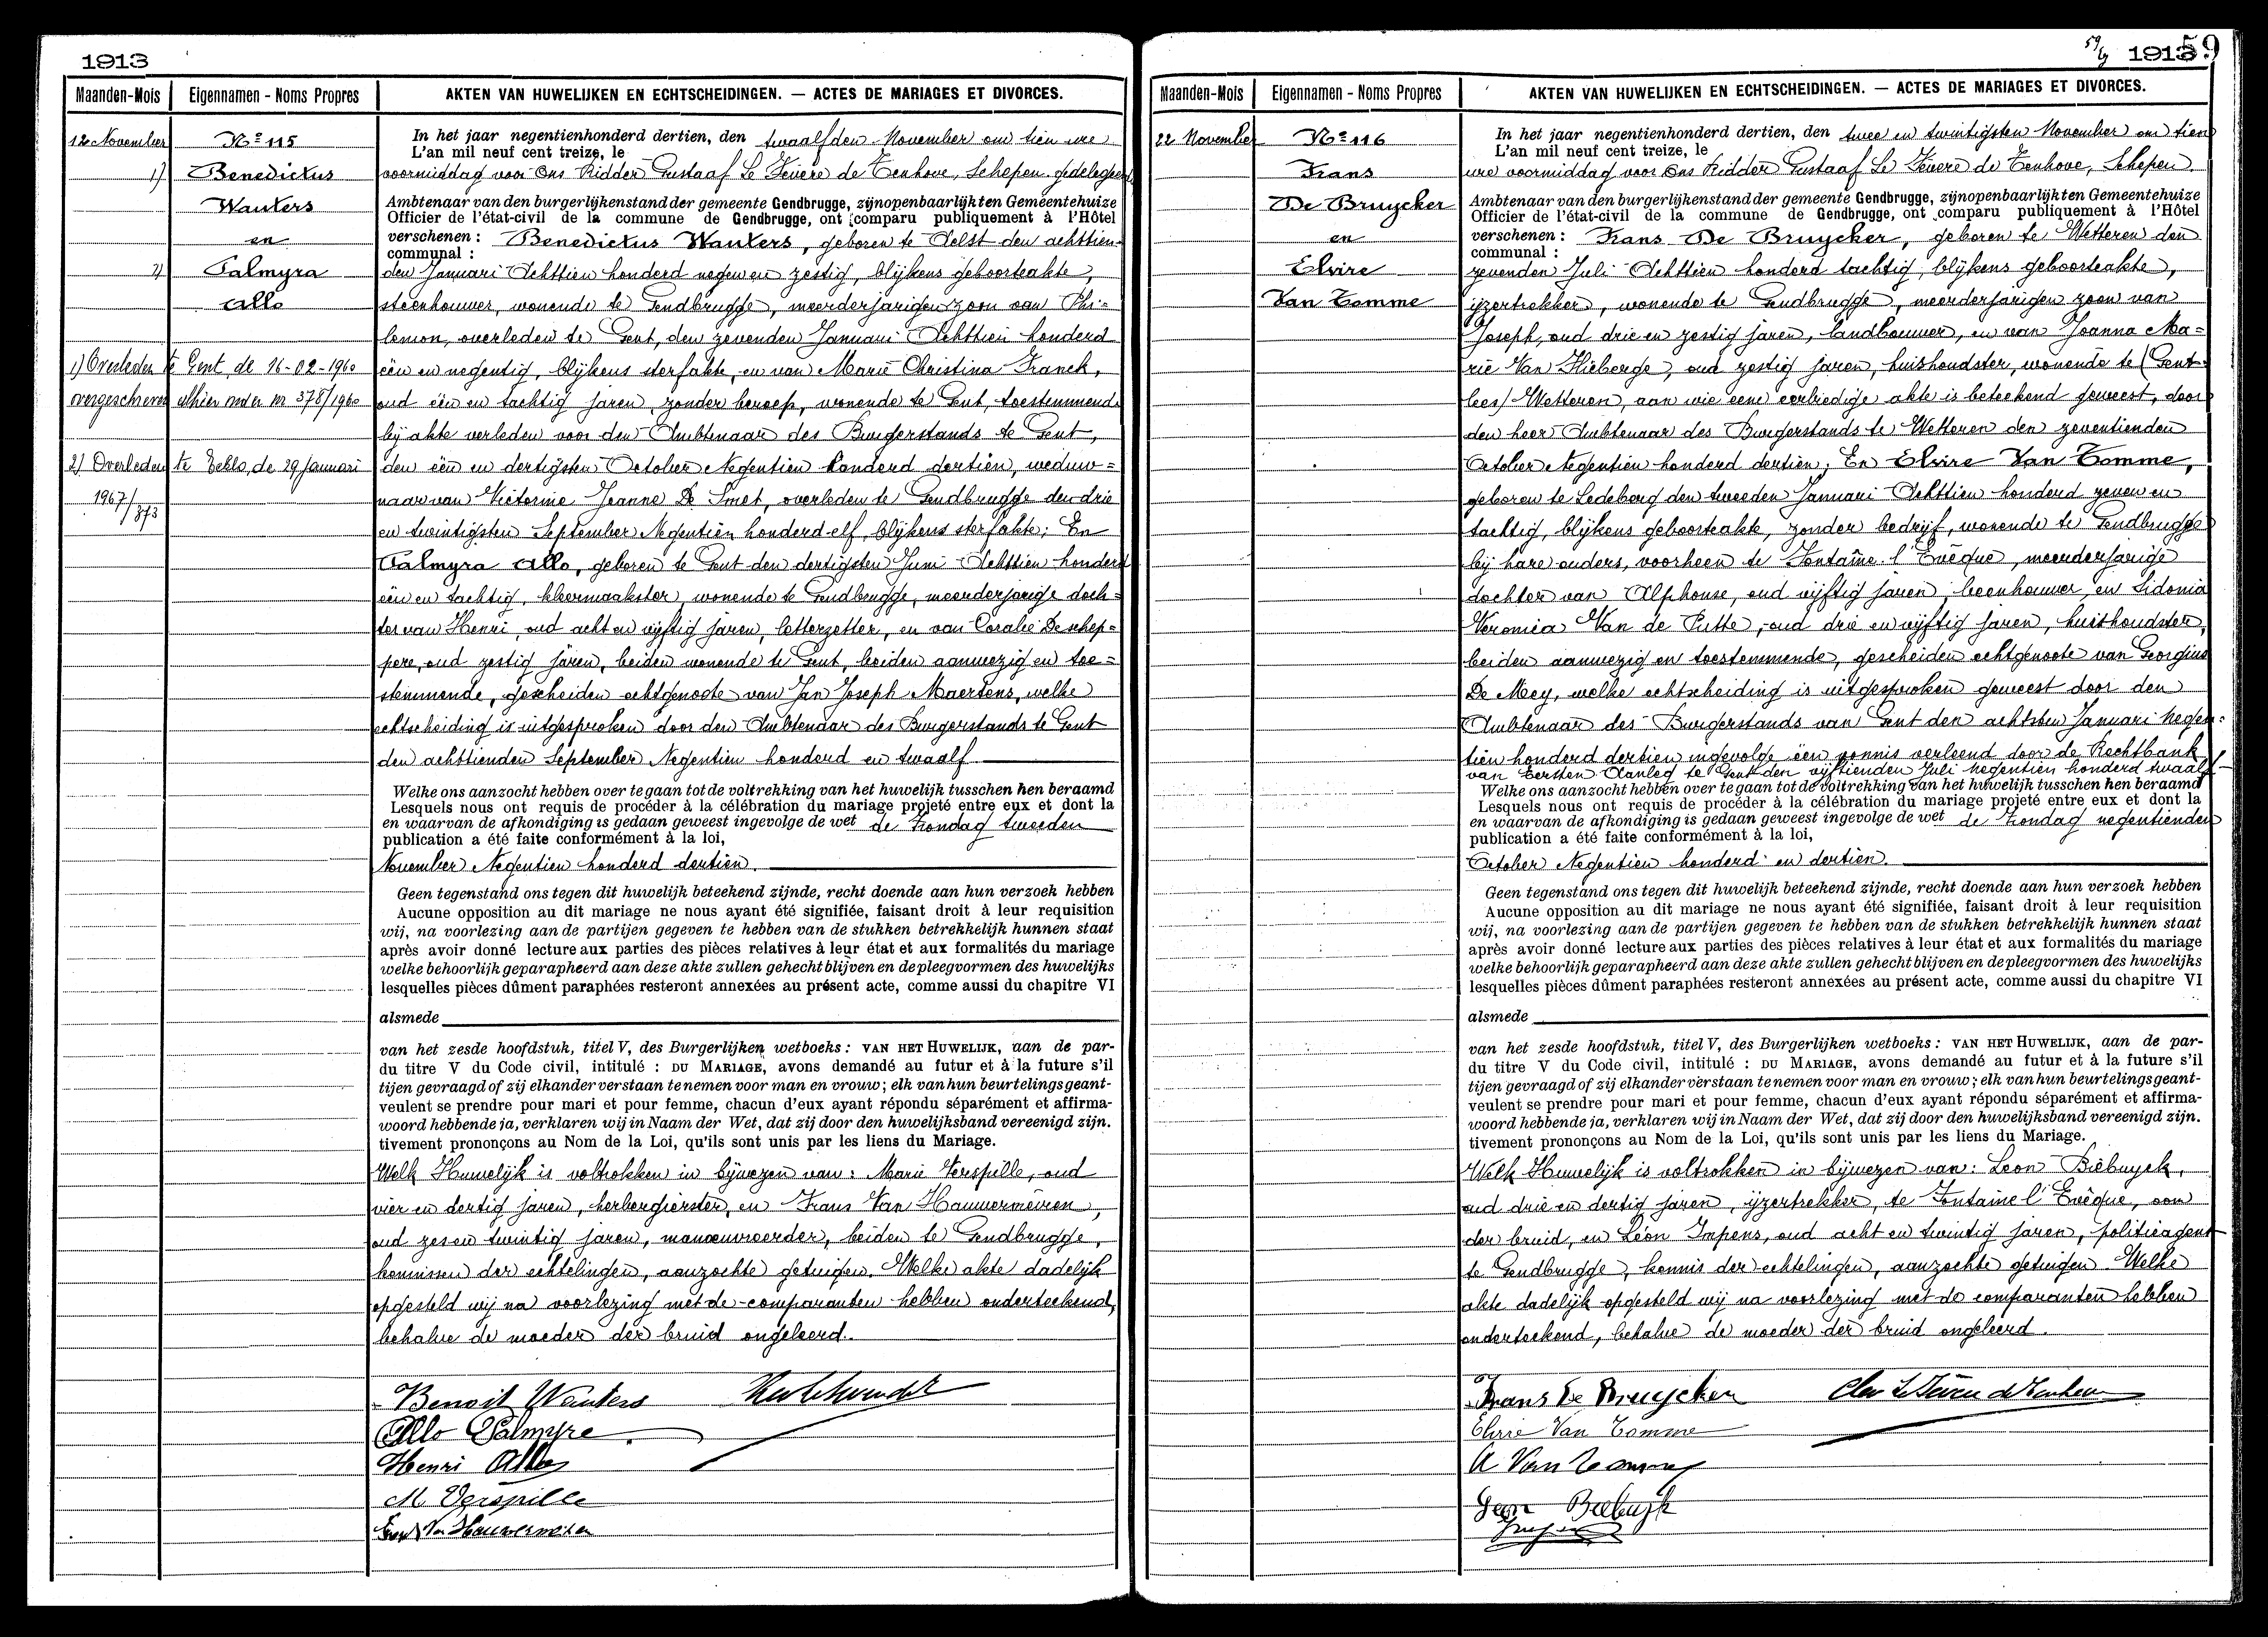 1913
Maanden-Mois
Eigennamen - Noms Propres
AKTEN VAN HUWELIJKEN EN ECHTSCHEIDINGEN. — ACTES DE MARIAGES ET DIVORCES.
12 November
No 115
1) Benedictus
Wauters
en
2) Palmyra
Allo
1) Overleden te Gent, de 16-02-1960
overgeschreven alhier onder nr 378/1960
2) Overleden te Eeklo, de 29 Januari
1967/373
In het jaar negentienhonderd dertien, den twaalfden November om tien ure
L'an mil neuf cent treize, le
voormiddag voor Ons Ridder Gustaaf Le Fevere de Tenhove, Schepen gedelegeerd
Ambtenaar van den burgerlijkenstand der gemeente Gendbrugge, zijn openbaarlijk ten Gemeentehuize
Officier de l'état-civil de la commune de Gendbrugge, ont comparu publiquement à l'Hôtel
verschenen : Benedictus Wauters, geboren te Aelst den achttien-
communal :
den Januari Achttien honderd negen en zestig, blijkens geboorteakte,
steenhouwer, wonende te Gendbrugge, meerderjarigen zoon van Phi-
lemon, overleden te Gent, den zevenden Januari Achttien honderd
één en negentig, blijkens sterfakte, en van Marie Christina Franck,
oud één en tachtig jaren, zonder beroep, wonende te Gent, toestemmende
bij akte verleden voor den Ambtenaar des Burgerstands te Gent,
den één en dertigsten October Negentien honderd dertien, weduw=
naar van Victorine Jeanne De Smet, overleden te Gendbrugge den drie
en twintigsten September Negentien honderd elf, blijkens sterfakte; En
Palmyra Allo, geboren te Gent den dertigsten Juni Achttien honderd
één en tachtig, kleermaakster, wonende te Gendbrugge, meerderjarige doch=
ter van Henri, oud acht en vijftig jaren, letterzetter, en van Coralie De schep=
pere, oud zestig jaren, beiden wonende te Gent, beiden aanwezig en toe=
stemmende, gescheiden echtgenoote van Jan Joseph Maertens, welke
echtscheiding is uitgesproken door den Ambtenaar des Burgerstands te Gent
den achttienden September Negentien honderd en twaalf
Welke ons aanzocht hebben over te gaan tot de voltrekking van het huwelijk tusschen hen beraamd
Lesquels nous ont requis de procéder à la célébration du mariage projeté entre eux et dont la
en waarvan de afkondiging is gedaan geweest ingevolge de wet de Zondag tweeden
publication a été faite conformément à la loi,
November Negentien honderd dertien.
Geen tegenstand ons tegen dit huwelijk beteekend zijnde, recht doende aan hun verzoek hebben
Aucune opposition au dit mariage ne nous ayant été signifiée, faisant droit à leur requisition
wij, na voorlezing aan de partijen gegeven te hebben van de stukken betrekkelijk hunnen staat
après avoir donné lecture aux parties des pièces relatives à leur état et aux formalités du mariage
welke behoorlijk geparapheerd aan deze akte zullen gehecht blijven en de pleegvormen des huwelijks
lesquelles pièces dûment paraphées resteront annexées au présent acte, comme aussi du chapitre VI
alsmede
van het zesde hoofdstuk, titel V, des Burgerlijken wetboeks : VAN HET HUWELIJK, aan de par-
du titre V du Code civil, intitulé : DU MARIAGE, avons demandé au futur et à la future s'il
tijen gevraagd of zij elkander verstaan te nemen voor man en vrouw ; elk van hun beurtelings geant-
veulent se prendre pour mari et pour femme, chacun d'eux ayant répondu séparément et affirma-
woord hebbende ja, verklaren wij in Naam der Wet, dat zij door den huwelijksband vereenigd zijn.
tivement prononçons au Nom de la Loi, qu'ils sont unis par les liens du Mariage.
Welk Huwelijk is voltrokken in bijwezen van : Marie Verspille, oud
vier en dertig jaren, herbergierster, en Frans Van Hauwermeiren,
oud zes en twintig jaren, manœuvreerder, beiden te Gendbrugge,
kennissen der echtelingen, aanzochte getuigen. Welke akte dadelijk
opgesteld wij na voorlezing met de comparanten hebben onderteekend,
behalve de moeder der bruid ongeleerd.
Benoit Wauters
Allo Palmyre
Henri Allo
M Verspille
Van Hauwermeiren
59
1913
59
Maanden-Mois
Eigennamen - Noms Propres
AKTEN VAN HUWELIJKEN EN ECHTSCHEIDINGEN. — ACTES DE MARIAGES ET DIVORCES.
22 November
No 116
Frans
De Bruycker
en
Elvire
Van Tomme
In het jaar negentienhonderd dertien, den twee en twintigsten November om tien
L'an mil neuf cent treize, le
ure voormiddag voor Ons Ridder Gustaaf Le Fevere de Tenhove, Schepen
Ambtenaar van den burgerlijkenstand der gemeente Gendbrugge, zijn openbaarlijk ten Gemeentehuize
Officier de l'état-civil de la commune de Gendbrugge, ont comparu publiquement à l'Hôtel
verschenen : Frans De Bruycker, geboren te Wetteren den
communal :
zevenden Juli Achttien honderd tachtig, blijkens geboorteakte,
ijzertrekker, wonende te Gendbrugge, meerderjarigen zoon van
Joseph, oud drie en zestig jaren, landbouwer, en van Joanna Ma=
rie Van Hieberge, oud zestig jaren, huishoudster, wonende te (Gent
lees) Wetteren, aan wie eene eerbiedige akte is beteekend geweest, door
den heer Ambtenaar des Burgerstands te Wetteren den zeventienden
October Negentien honderd dertien; En Elvire Van Tomme,
geboren te Ledeberg den tweeden Januari Achttien honderd zeven en
tachtig, blijkens geboorteakte, zonder bedrijf, wonende te Gendbrugge
bij hare ouders, voorheen te Fontaine l'Evêque, meerderjarige
dochter van Alphonse, oud vijftig jaren, beenhouwer, en Sidonia
Veronica Van de Putte, oud drie en vijftig jaren, huishoudster,
beiden aanwezig en toestemmende, gescheiden echtgenoote van Georgius
De Mey, welke echtscheiding is uitgesproken geweest door den
Ambtenaar des Burgerstands van Gent den achtsten Januari Negen=
tien honderd dertien ingevolge één vonnis verleend door de Rechtbank
van Eersten Aanleg te Gent den vijftienden Juli Negentien honderd twaalf
Welke ons aanzocht hebben over te gaan tot de voltrekking van het huwelijk tusschen hen beraamd
Lesquels nous ont requis de procéder à la célébration du mariage projeté entre eux et dont la
en waarvan de afkondiging is gedaan geweest ingevolge de wet de Zondag negentienden
publication a été faite conformément à la loi,
October Negentien honderd en dertien.
Geen tegenstand ons tegen dit huwelijk beteekend zijnde, recht doende aan hun verzoek hebben
Aucune opposition au dit mariage ne nous ayant été signifiée, faisant droit à leur requisition
wij, na voorlezing aan de partijen gegeven te hebben van de stukken betrekkelijk hunnen staat
après avoir donné lecture aux parties des pièces relatives à leur état et aux formalités du mariage
welke behoorlijk geparapheerd aan deze akte zullen gehecht blijven en de pleegvormen des huwelijks
lesquelles pièces dûment paraphées resteront annexées au présent acte, comme aussi du chapitre VI
alsmede
van het zesde hoofdstuk, titel V, des Burgerlijken wetboeks : VAN HET HUWELIJK, aan de par-
du titre V du Code civil, intitulé : DU MARIAGE, avons demandé au futur et à la future s'il
tijen gevraagd of zij elkander verstaan te nemen voor man en vrouw ; elk van hun beurtelings geant-
veulent se prendre pour mari et pour femme, chacun d'eux ayant répondu séparément et affirma-
woord hebbende ja, verklaren wij in Naam der Wet, dat zij door den huwelijksband vereenigd zijn.
tivement prononçons au Nom de la Loi, qu'ils sont unis par les liens du Mariage.
Welk Huwelijk is voltrokken in bijwezen van : Leon Biebuyck,
oud drie en dertig jaren, ijzertrekker, te Fontaine l'Evêque, oom
der bruid, en Léon Impens, oud acht en twintig jaren, politieagent
te Gendbrugge, kennis der echtelingen, aanzochte getuigen. Welke
akte dadelijk opgesteld wij na voorlezing met de comparanten hebben
onderteekend, behalve de moeder der bruid ongeleerd.
Frans De Bruycker
Elvire Van Tomme
A Van Tomme